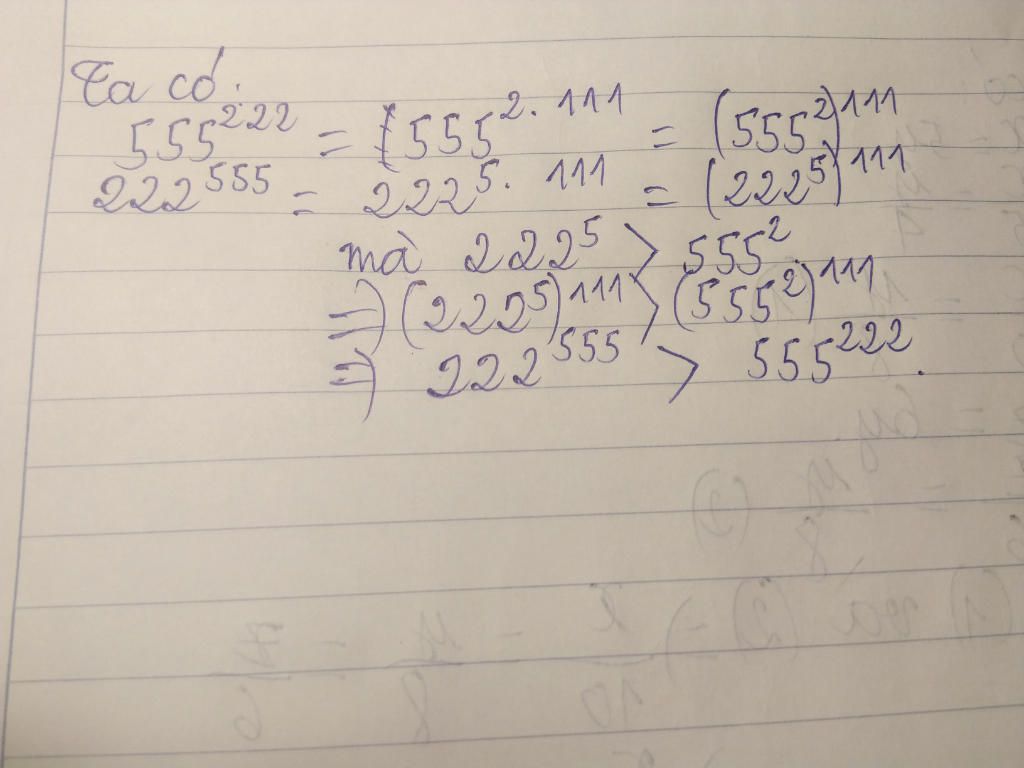 Ta có:
555²²² = 555².¹¹¹ = (555²)¹¹¹
222⁵⁵⁵ = 222⁵.¹¹¹ = (222⁵)¹¹¹
mà 222⁵ > 555².
=> (222⁵)¹¹¹ > (555²)¹¹¹
=> 222⁵⁵⁵ > 555²²².